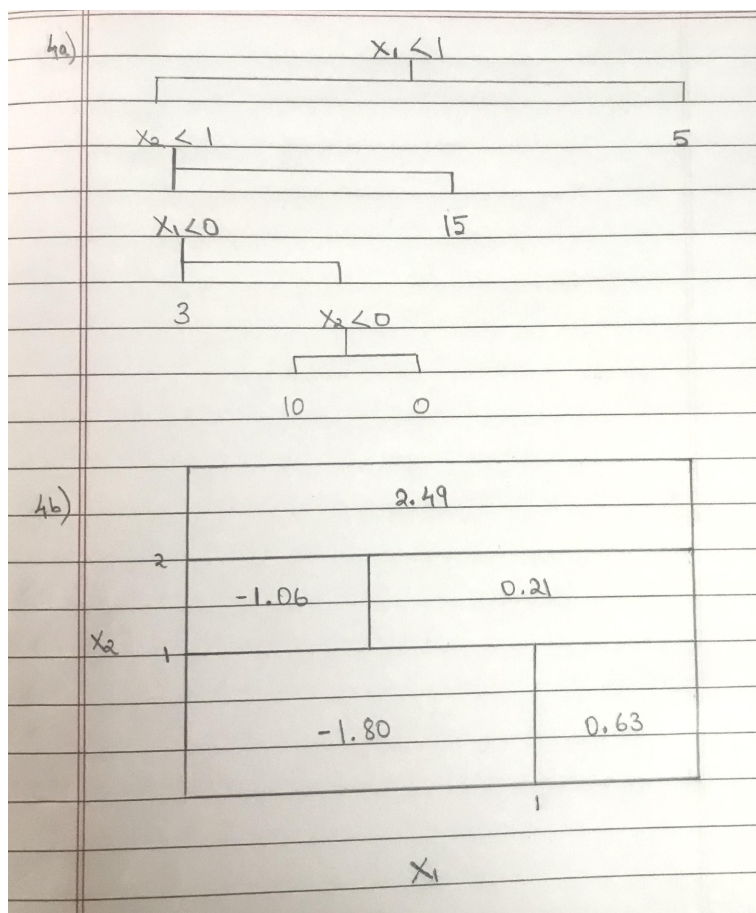 4a) X₁ < 1
X₂ < 1 5
X₁ < 0 15
3 X₂ < 0
10 0
4b) 2.49
2
-1.06 0.21
X₂ 1
-1.80 0.63
1
X₁